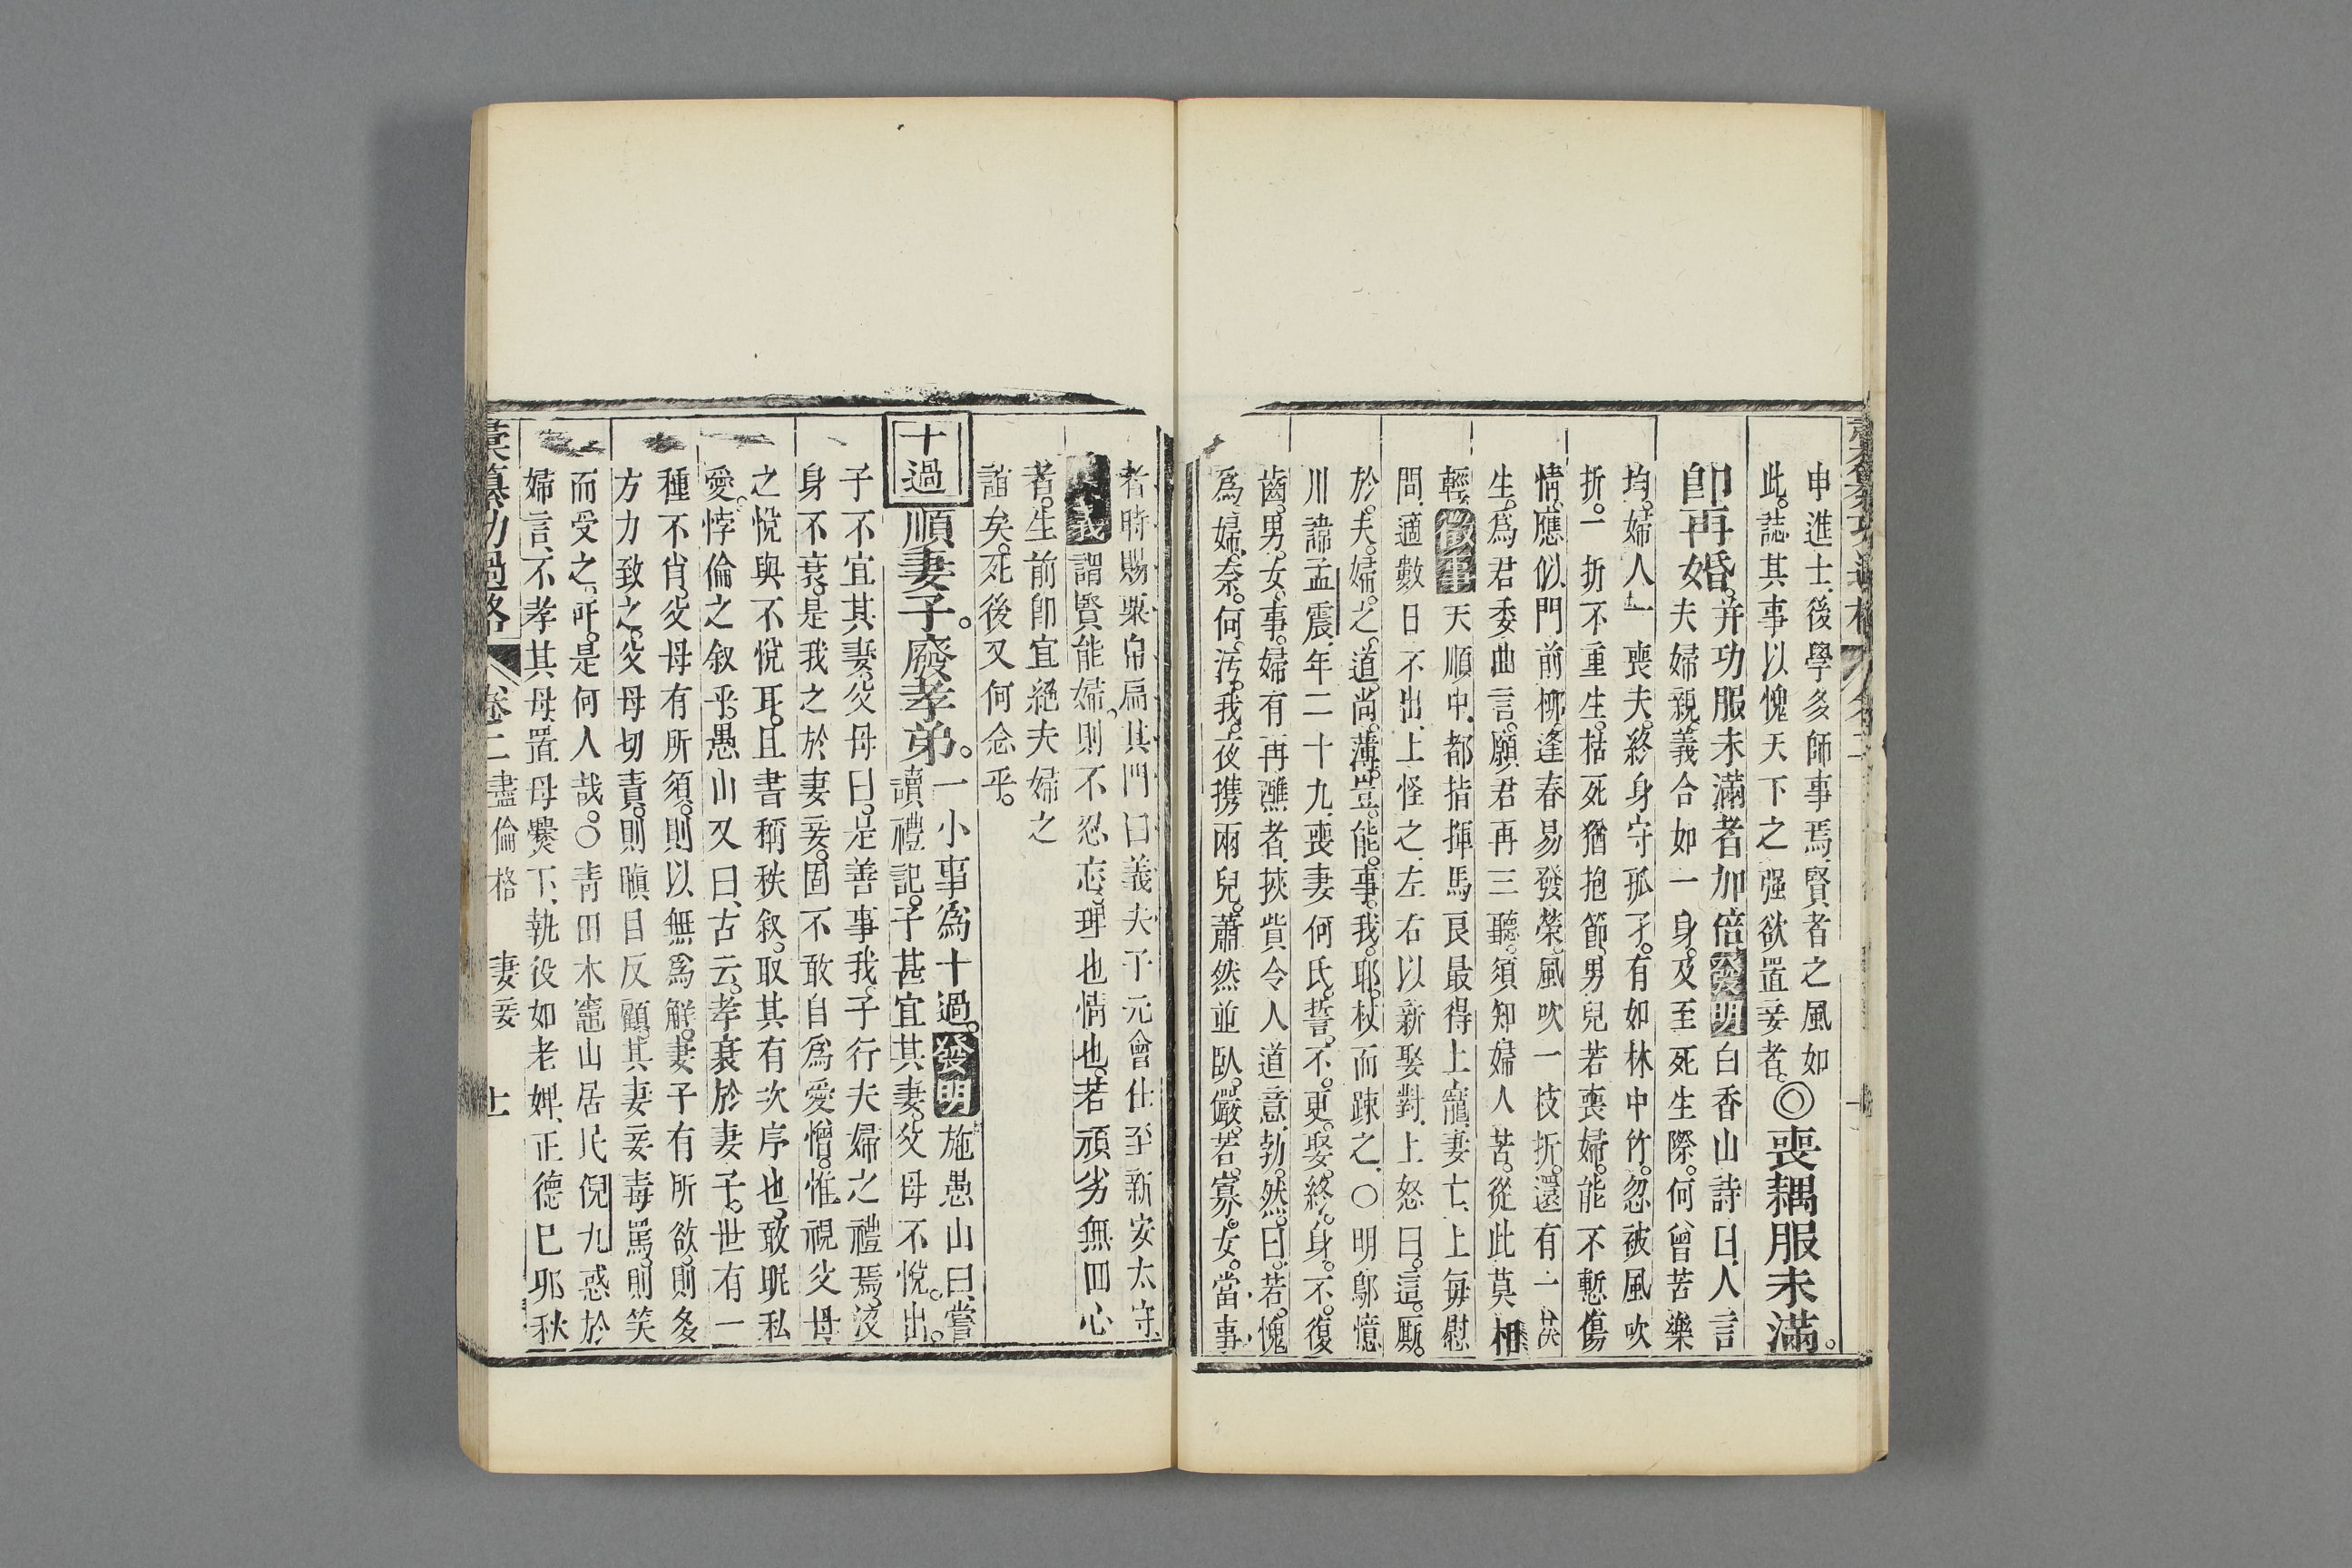 申進士後學多師事焉賢者之風如
此。誌其事以愧天下之强欲置妾者。◎喪耦服未滿。
卽再婚。并功服未滿者加倍發明白香山詩曰人言
夫婦親。義合如一身。及至死生際。何曾苦樂
均。婦人一喪夫。終身守孤孑。有如林中竹。忽被風吹
折。一折不重生。枯死猶抱節。男兒若喪婦。能不暫傷
情。應似門前柳。逢春易發榮。風吹一枝折。還有一枝
生。爲君委曲言。願君再三聽。須知婦人苦。從此莫相
輕。徵事天順中都指揮馬良最得上寵妻亡上每慰
問適數日不出上怪之左右以新娶對上怒曰。這。厮。
於。夫。婦。之。道。尚。薄。豈。能。事。我。耶。杖而疎之○明鄔憶
川諱孟震年二十九喪妻何氏。誓。不。更。娶。終。身。不。復
齒。男。女。事。婦有再醮者挾貲令人道意勃。然。曰。若。愧
爲。婦。奈。何。汚。我。夜攜兩兒。蕭然並臥。儼。若。寡。女。當事
者時賜粟帛扁其門曰義夫子元會仕至新安太守
義謂賢能婦則不忍忘理也情也。若頑劣無回心
者。生前卽宜絕夫婦之
誼矣。死後又何念乎。
十過順妻子。廢孝弟。一小事爲十過。發明施愚山曰嘗
讀禮記。子甚宜其妻。父母不悅。出。
子不宜其妻。父母曰。是善事我。子行夫婦之禮焉。沒
身不衰。是我之於妻妾。固不敢自爲愛憎。惟視父母
之悅與不悅耳。且書稱秩叙。取其有次序也。敢昵私
愛。悖倫之叙乎。愚山又曰古云。孝衰於妻子。世有一
種不肖。父母有所須。則以無爲解。妻子有所欲。則多
方力致之。父母切責。則瞋目反顧。其妻妾毒罵。則笑
而受之。吁。是何人哉。○靑田木竈山居民倪九惑於
婦言不孝其母置母爨下執役如老婢正德巳卯秋
彙纂功過格 卷二盡倫格 妻妾 上